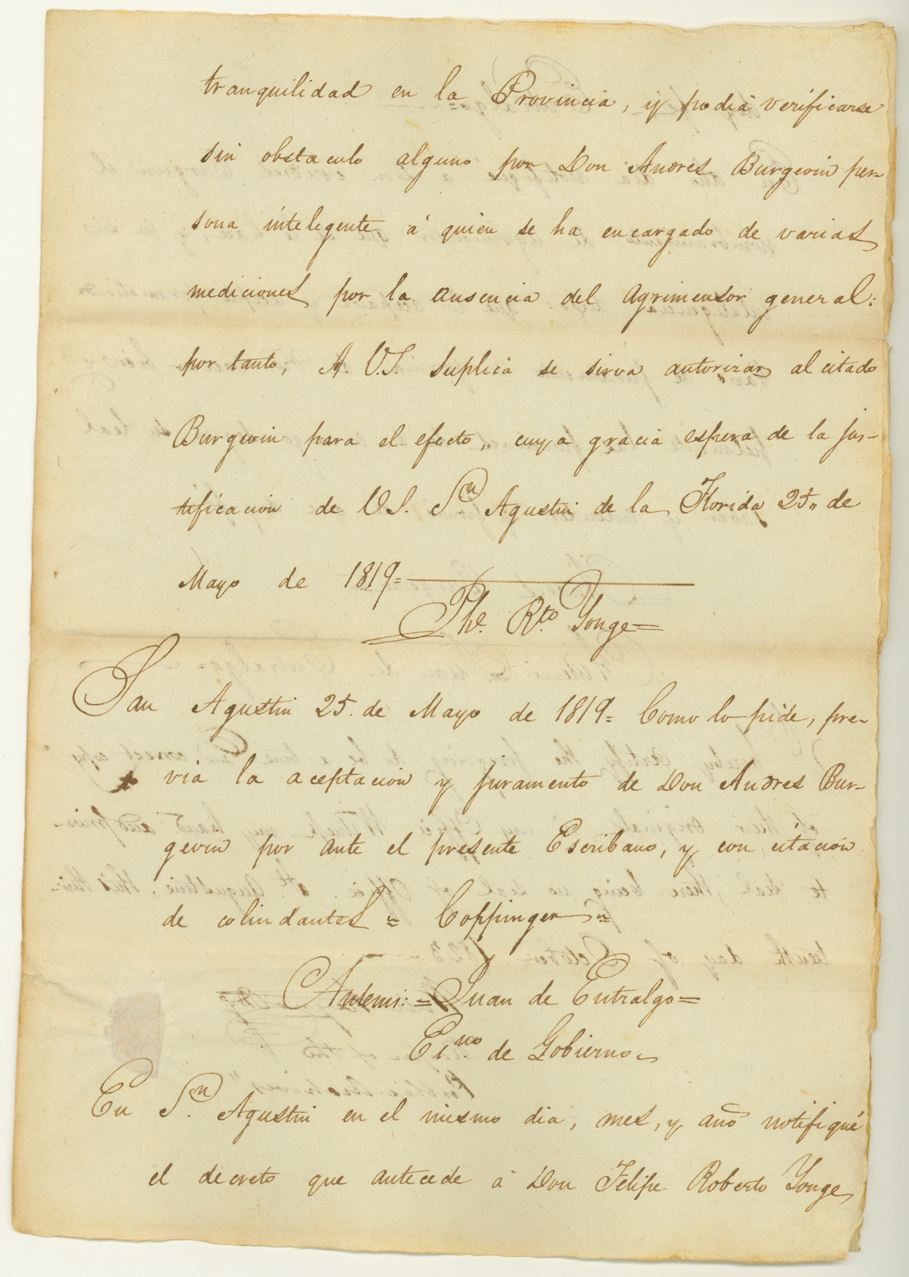 tranquilidad en la Provincia, y podiá verificarse
sin obstaculo alguno por Don Andres Burgevin per-
sona intelegente á quien se ha encargado de varias
mediciones por la ausencia del Agrimensor general:
por tanto, A. V.S. Suplica se sirva autorizar al citado
Burgevin para el efecto, cuya gracia espera de la jus-
tificacion de V.S. Sn. Agustin de la Florida 25,, de
Mayo de 1819=
Phe. Rto. Yonge=
San Agustin 25. de Mayo de 1819= Como lo pide, pre-
via la aceptacion y juramento de Don Andres Bur-
gevin por ante el presente Escribano, y con citacion
de colindantes = Coppinger =
Antemi: = Juan de Entralgo =
Esno. de Gobierno
En Sn. Agustin en el mismo dia, mes, y año notifiqué
el decreto que antecede á Don Felipe Roberto Yonge,